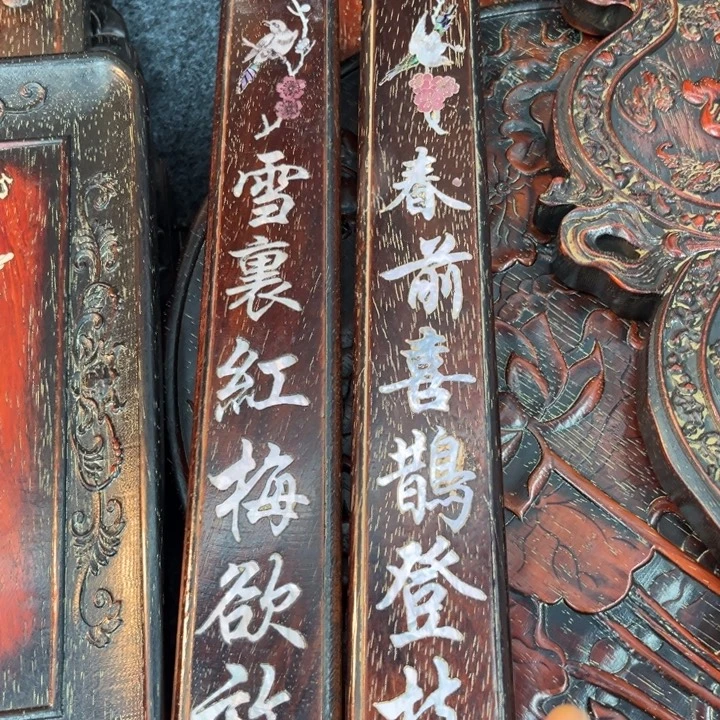 春前喜鵲登枝
雪裏紅梅欲放